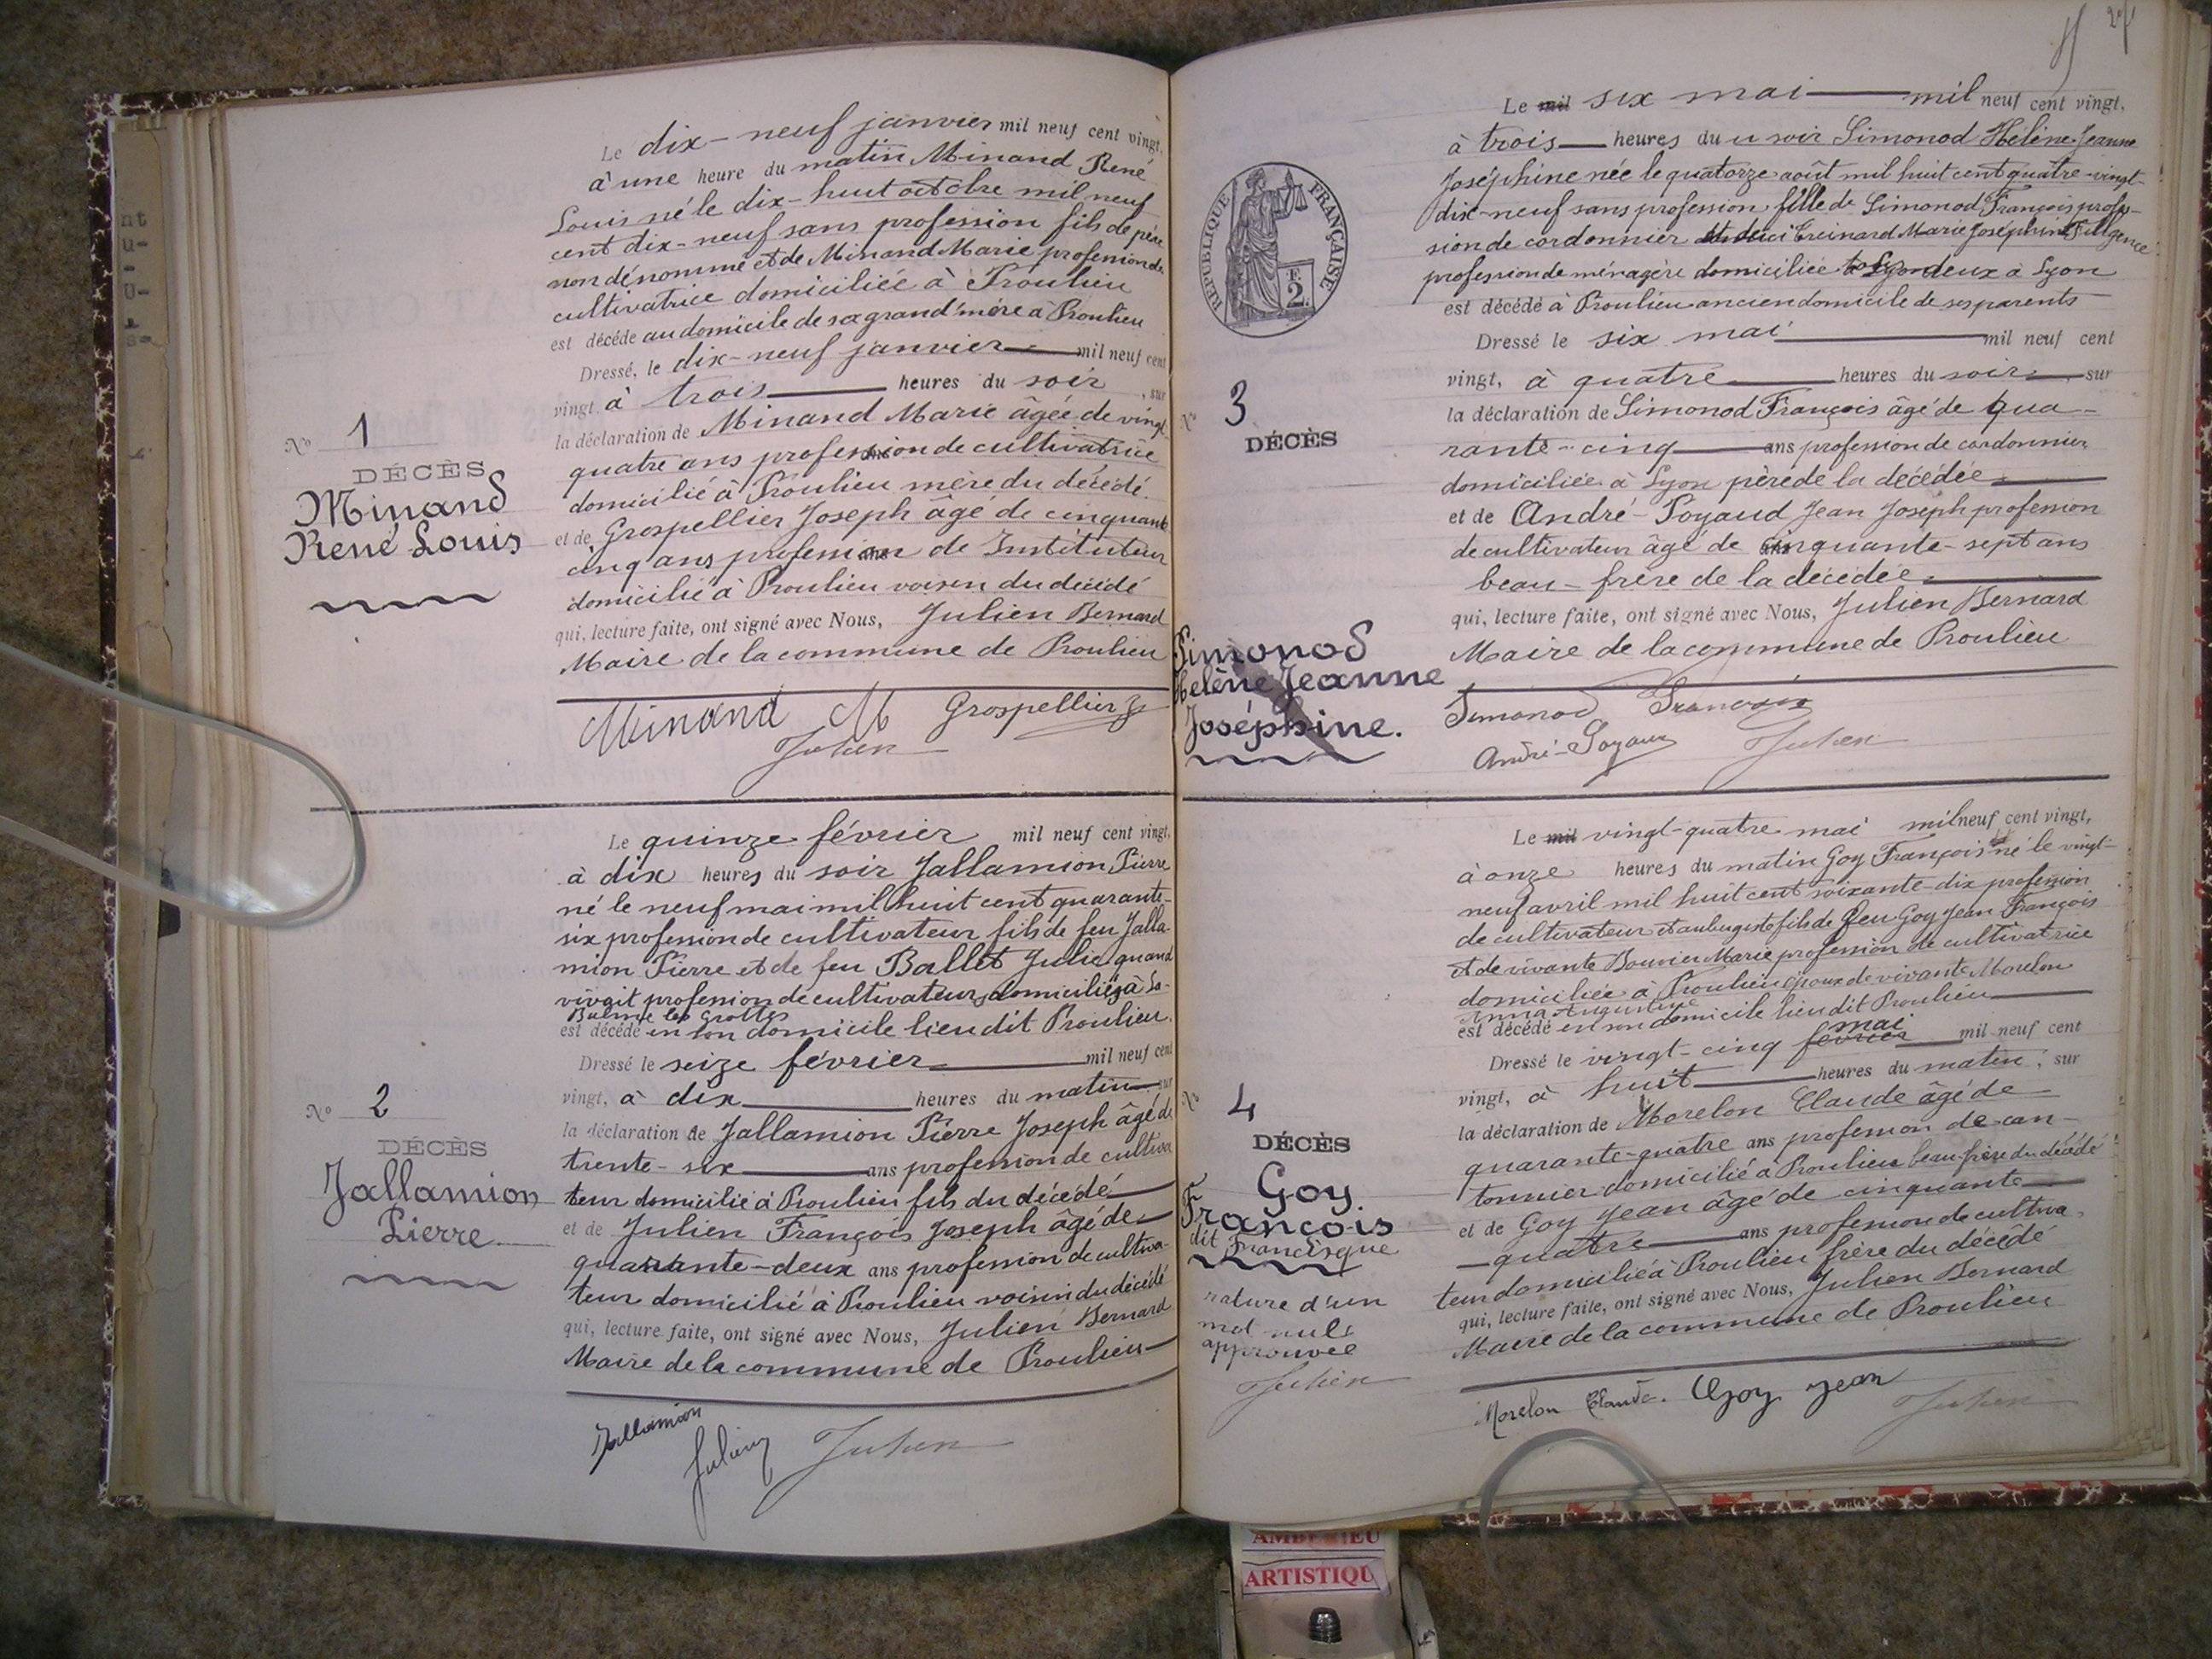 Le dix-neuf janvier mil neuf cent vingt,
à une heure du matin Minand René
Louis né le dix-huit octobre mil neuf
cent dix-neuf sans profession fils de père
non dénommé et de Minand Marie profession de
cultivatrice domiciliée à Proulieu
est décédé au domicile de sa grand'mère à Proulieu
Dressé, le dix-neuf janvier mil neuf cent
vingt à trois heures du soir, sur
la déclaration de Minand Marie âgée de vingt
quatre ans profession de cultivatrice
domicilié à Proulieu mère du décédé
et de Grospellier Joseph âgé de cinquante
cinq ans profession de Instituteur
domicilié à Proulieu voisin du décédé
qui, lecture faite, ont signé avec Nous, Julien Bernard
Maire de la commune de Proulieu
Nº 1
DÉCÈS
Minand
René Louis
Minand M Grospellier J
Julien
Le quinze février mil neuf cent vingt,
à dix heures du soir Jallamion Pierre
né le neuf mai mil huit cent quarante-
six profession de cultivateur fils de feu Jalla-
mion Pierre et de feu Ballet Julie quand
vivait profession de cultivateurs domiciliés à La-
Balme les Grottes
est décédé en son domicile lieu dit Proulieu.
Dressé le seize février mil neuf cent
vingt, à dix heures du matin sur
la déclaration de Jallamion Pierre Joseph âgé de
trente-six ans profession de cultiva
teur domicilié à Proulieu fils du décédé
et de Julien François Joseph âgé de
quarante-deux ans profession de cultiva-
teur domicilié à Proulieu voisin du décédé
qui, lecture faite, ont signé avec Nous, Julien Bernard
Maire de la commune de Proulieu
Nº 2
DÉCÈS
Jallamion
Pierre
Jallamion
Julien Julien
Le mil six mai mil neuf cent vingt,
à trois heures du u soir Simonod Hélène Jeanne
Joséphine née le quatorze août mil huit cent quatre-vingt-
dix-neuf sans profession fille de Simonod François profes-
sion de cordonnier Marie Joséphine
profession de ménagère domiciliée deux à Lyon
est décédé à Proulieu ancien domicile de ses parents
Dressé le six mai mil neuf cent
vingt, à quatre heures du soir sur
la déclaration de Simonod François âgé de qua-
rante-cinq ans profession de cordonnier
domiciliée à Lyon père de la décédée
et de André-Poyaud Jean Joseph profession
de cultivateur âgé de cinquante-sept ans
beau-frère de la décédée
qui, lecture faite, ont signé avec Nous, Julien Bernard
Maire de la commune de Proulieu
RÉPUBLIQUE FRANÇAISE
F.
2
Nº 3
DÉCÈS
Simonod
Helène Jeanne
Joséphine.
Simonod François
André-Poyaud Julien
Le mil vingt-quatre mai mil neuf cent vingt,
à onze heures du matin Goy François né le vingt-
neuf avril mil huit cent soixante-dix profession
de cultivateur et aubergiste fils de feu Goy Jean François
et de vivante Bouvier Marie profession de cultivatrice
domiciliée à Proulieu époux de vivante Morelon
Anna Augustine
est décédé en son domicile lieu dit Proulieu
mai
Dressé le vingt-cinq février mil neuf cent
vingt, à huit heures du matin, sur
la déclaration de Morelon Claude âgé de
quarante-quatre ans profession de can-
tonnier domicilié à Proulieu beau-frère du décédé
et de Goy Jean âgé de cinquante
-quatre ans profession de cultiva-
teur domicilié à Proulieu frère du décédé
qui, lecture faite, ont signé avec Nous, Julien Bernard
Maire de la commune de Proulieu
Nº 4
DÉCÈS
Goy
François
dit Francisque
rature d'un
mot nul
approuvée
Julien
Morelon Claude. Goy Jean Julien
ARTISTIQU